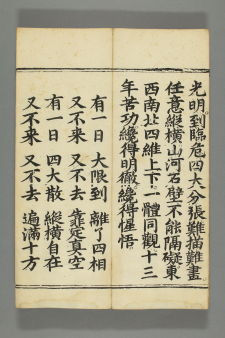 光明到臨危四大分張難描難畫
任意縱橫山河石壁不能隔礙東
西南北四維上下一體同觀十三
年苦功纔得明徹纔得惺悟
有一日 大限到 離了四相
又不來 又不去 靠定真空
有一日 四大散 縱橫自在
又不來 又不去 遍滿十方